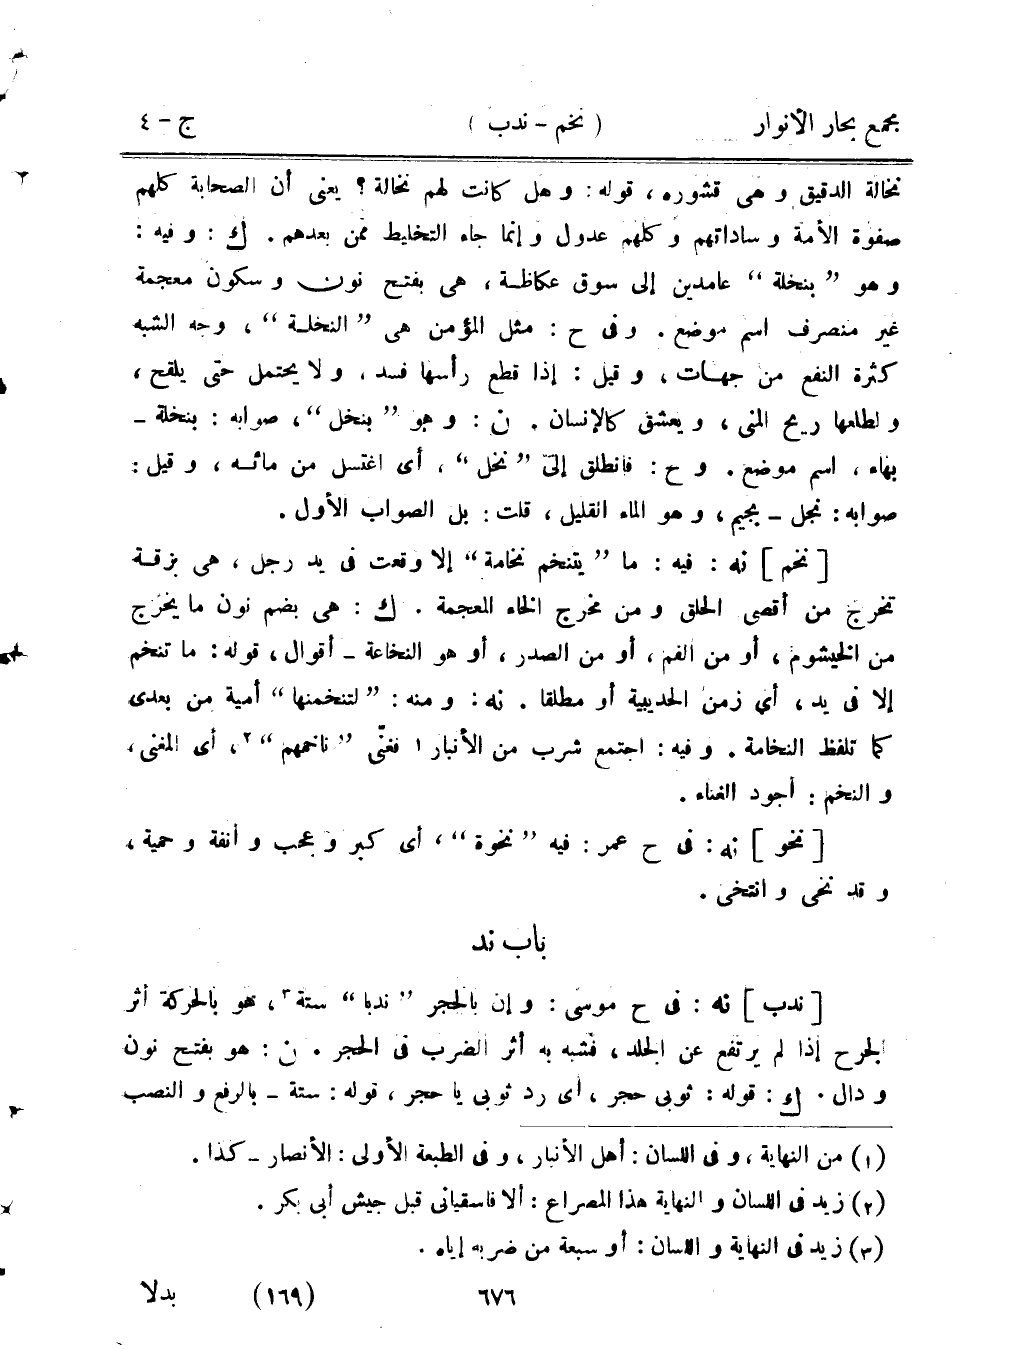 مجمع بحار الأنوار ( نخم - ندب ) ج - ٤
نخالة الدقيق و هى قشوره ، قوله : و هل كانت لهم نخالة ؟ يعنى أن الصحابة كلهم
صفوة الأمة و ساداتهم و كلهم عدول و إنما جاء التخليط ممن بعدهم . ك : و فيه :
و هو ” بنخلة “ عامدين إلى سوق عكاظـة ، هى بفتـح نون و سكون معجمة
غير منصرف اسم موضع . و فى ح : مثل المؤمن هى ” النخلـة “ ، وجه الشبه
كثرة النفع من جهـات ، و قيل : إذا قطع رأسها فسد ، و لا يحتمل حتى يلقح ،
و لطلعها ريح المنى ، و يعشق كالإنسان . ن : و هو ” بنخل “ ، صوابه : بنخلة -
بهاء ، اسم موضع . و ح : فانطلق إلىّ ” نخل “ ، أى اغتسل من مائـه ، و قيل :
صوابه : نجل - بجيم ، و هو الماء القليل ، قلت : بل الصواب الأول .
[ نخم ] نه : فيه : ما ” يتنخم نخامة “ إلا وقعت فى يد رجل ، هى بزقـة
تخرج من أقصى الحلق و من مخرج الخاء المعجمة . ك : هى بضم نون ما يخرج
من الخيشوم ، أو من الفم ، أو من الصدر ، أو هو النخاعة - أقوال ، قوله : ما تنخم
إلا فى يد ، أي زمن الحديبية أو مطلقا . نه : و منه : ” لتنخمنها “ أمية من بعدى
كما تلفظ النخامة . و فيه : اجتمع شرب من الأنبار ١ فغنّى ” ناخمهم “ ٢ ، أى المغنى ،
و النخم : أجود الغناء .
[ نخو ] نه : فى ح عمر : فيه ” نخوة “ ، أى كبر و عجب و أنفة و حمية ،
و قد نخى و انتخى .
باب ند
[ ندب ] نه : فى ح موسى : و إن بالحجر ” ندبا “ ستة ٣ ، هو بالحركة أثر
الجرح إذا لم يرتفع عن الجلد ، فشبه به أثر الضرب فى الحجر . ن : هو بفتـح نون
و دال . ك : قوله : ثوبى حجر ، أى رد ثوبى يا حجر ، قوله : ستة - بالرفع و النصب
(١) من النهاية ، و فى اللسان : أهل الأنبار ، و فى الطبعة الأولى : الأنصار - كذا .
(٢) زيد فى اللسان و النهاية هذا المصراع : ألا فاسقيانى قبل جيش أبى بكر .
(٣) زيد فى النهاية و اللسان : أو سبعة من ضربه إياه .
٦٧٦ (١٦٩) بدلا